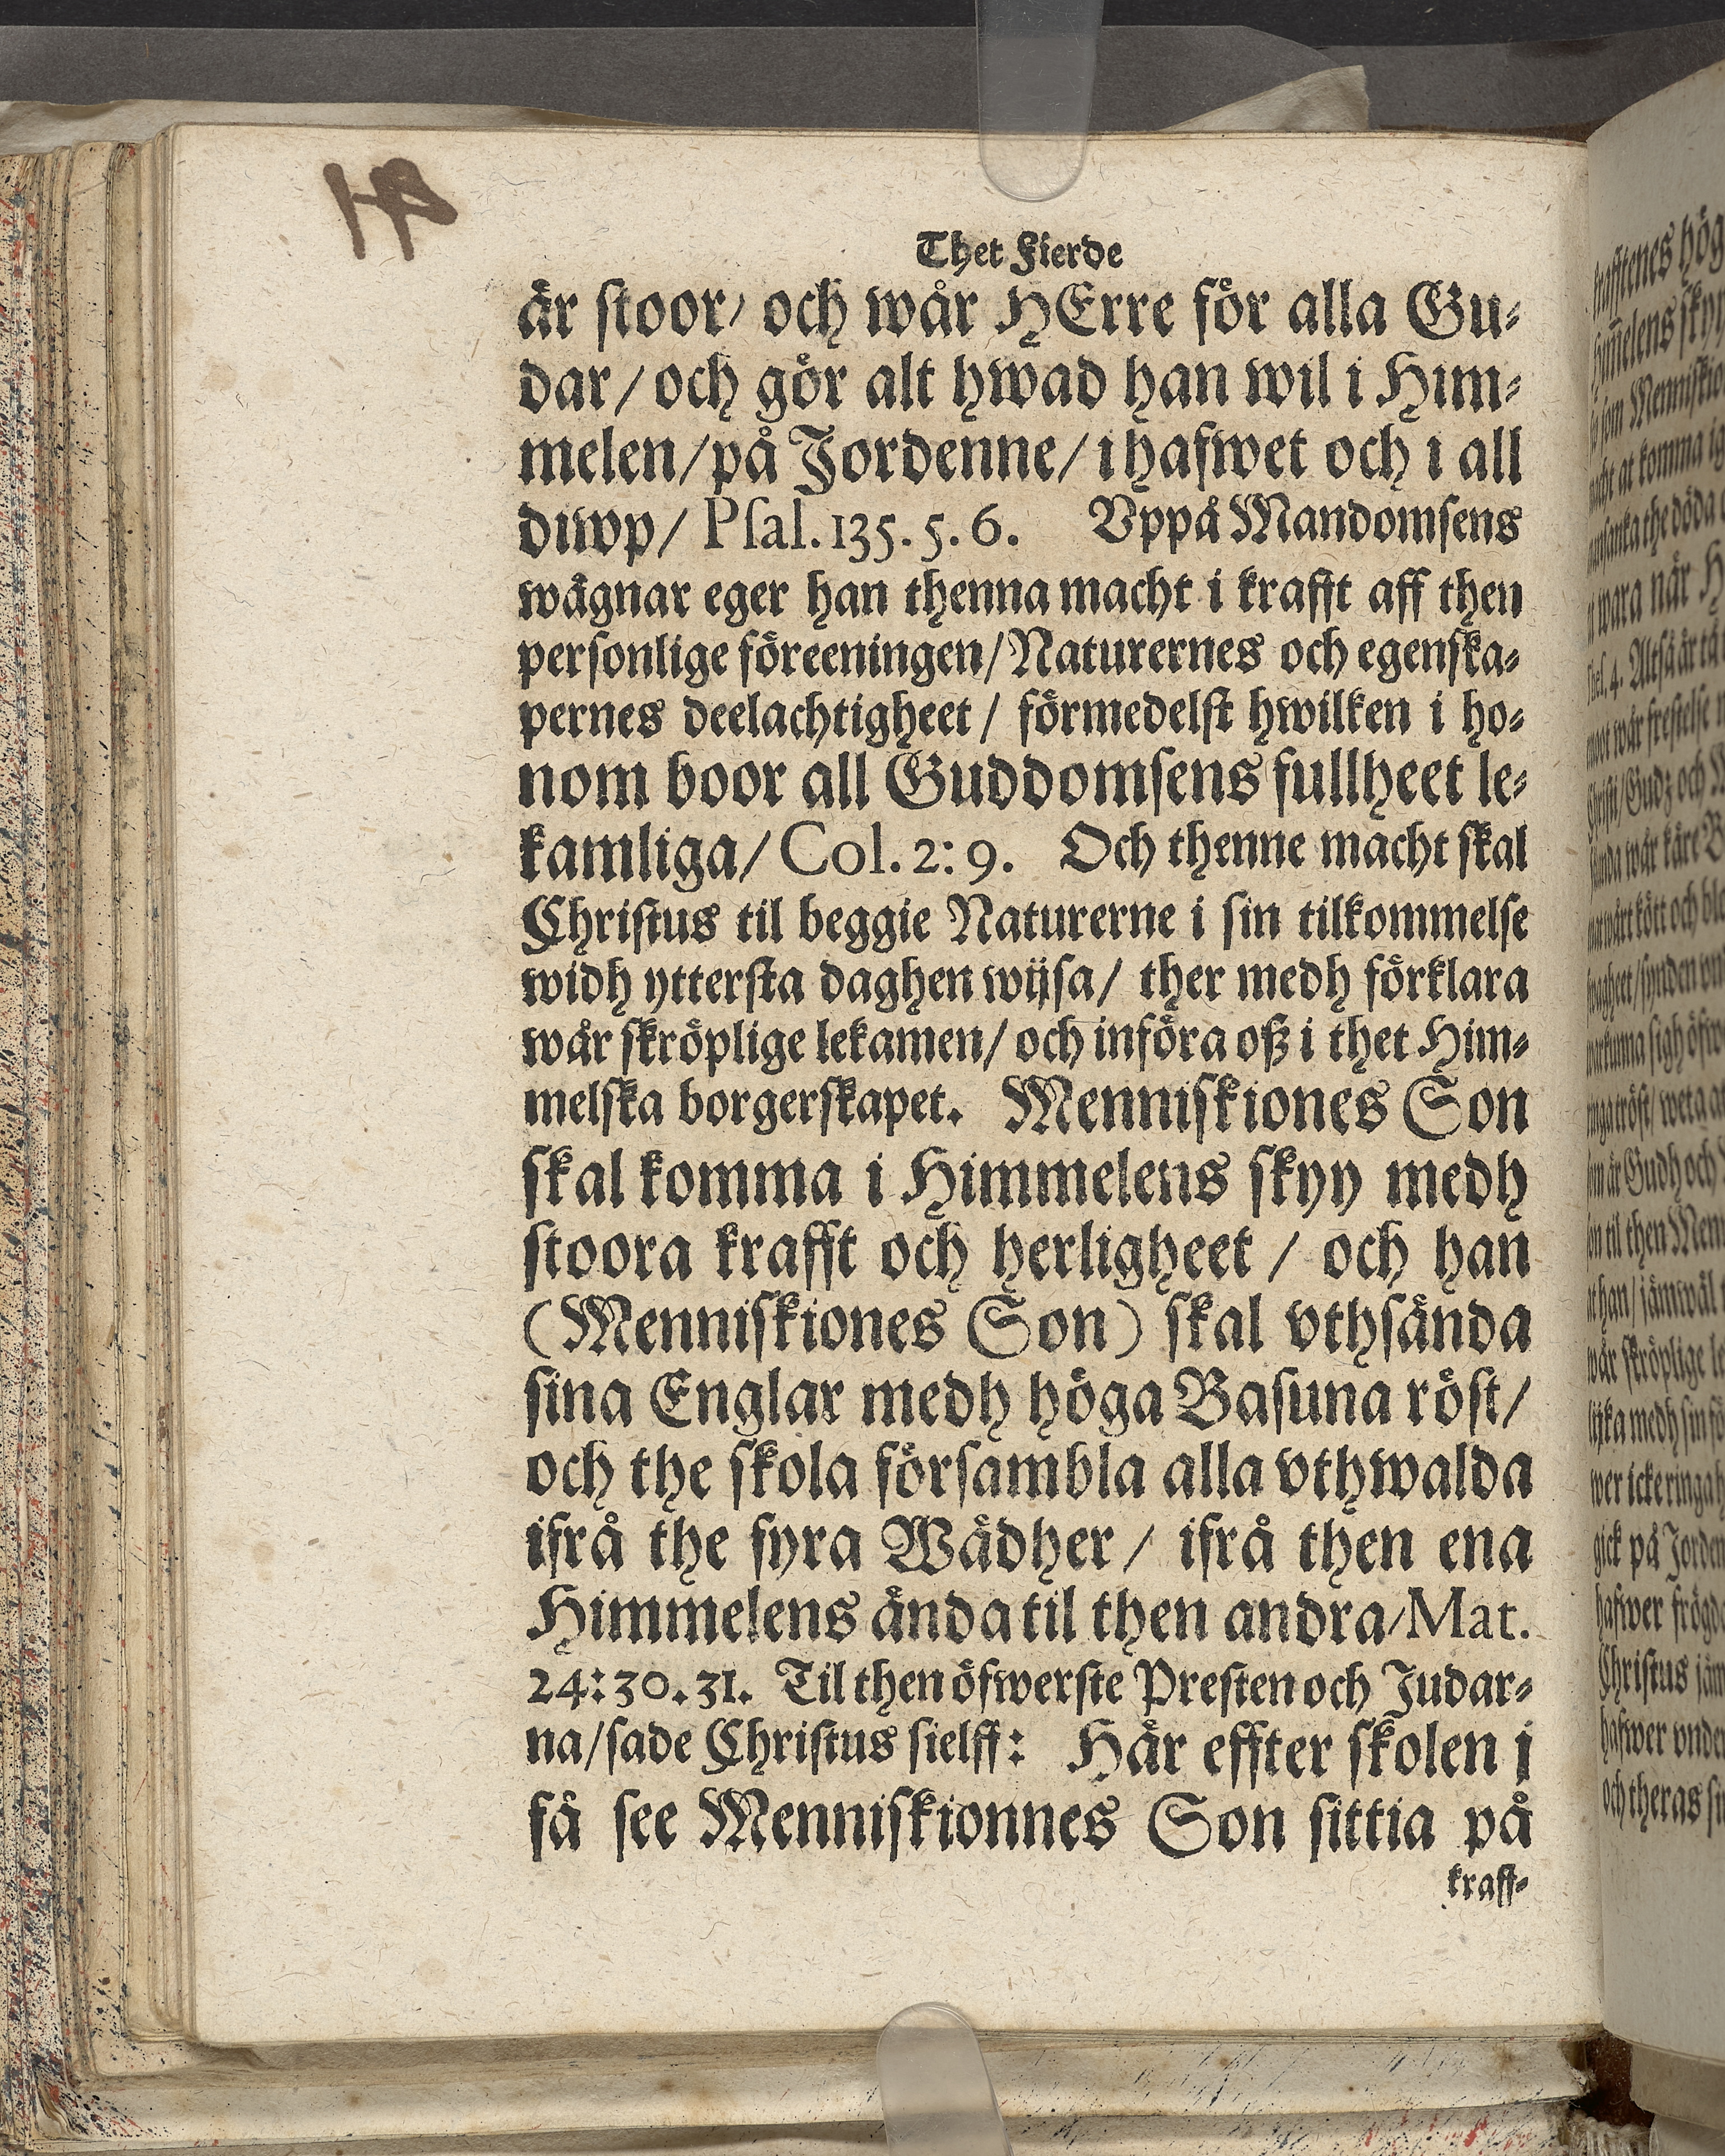 Thet Fierde
är stoor/ och wår HErre för alla Gu-
dar/ och gör alt hwad han wil i Him-
melen/ på Jordenne/ i hafwet och i all
diwp/ Psal. 135. 5. 6. Vppå Mandomsens
wägnar eger han thenna macht i krafft aff then
personlige föreeningen/ Naturernes och egenska-
pernes deelachtigheet/ förmedelst hwilken i ho-
nom boor all Guddomsens fullheet le-
kamliga/ Col. 2: 9. Och thenne macht skal
Christus til beggie Naturerne i sin tilkommelse
widh yttersta daghen wijsa/ ther medh förklara
wår skröplige lekamen/ och införa oß i thet Him-
melska borgerskapet. Menniskiones Son
skal komma i Himmelens skyy medh
stoora krafft och herligheet / och han
(Menniskiones Son) skal vthsända
sina Englar medh höga Basuna röst/
och the skola försambla alla vthwalda
ifrå the fyra Wädher/ ifrå then ena
Himmelens ända til then andra/ Mat.
24: 30. 31. Til then öfwerste Presten och Judar-
na/ sade Christus sielff: Här effter skolen j
få see Menniskionnes Son sittia på
kraff-